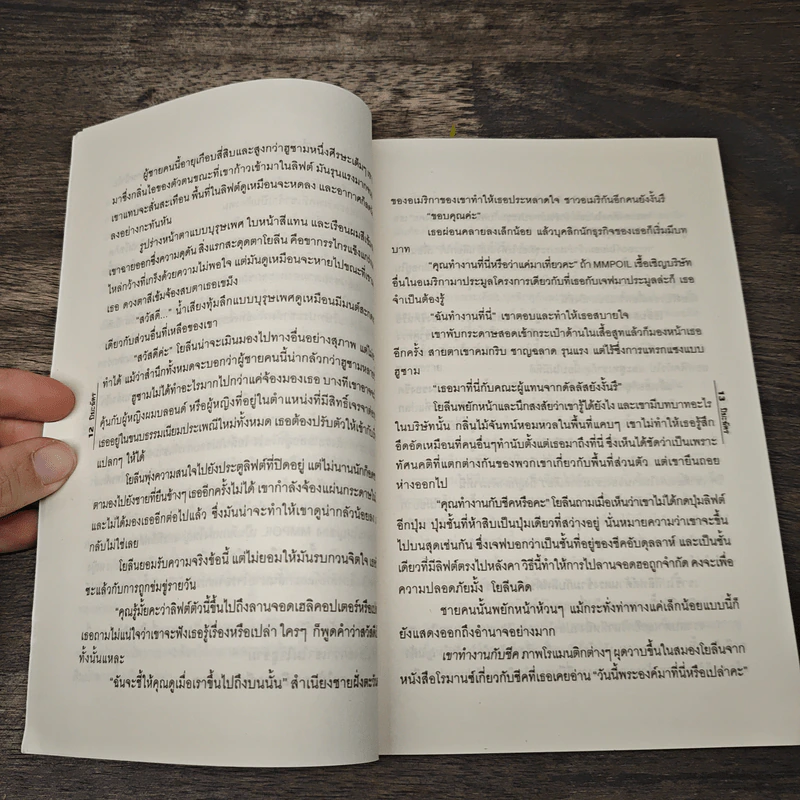 ผู้ชายคนนี้อายุเกือบสี่สิบและสูงกว่าฮูซามหนึ่งศีรษะเต็มๆ
มาซึ่งกลิ่นไอของตัวตนขณะที่เขาก้าวเข้ามาในลิฟต์ มันรุนแรงมาก
เขาแทบจะสั่นสะเทือน พื้นที่ในลิฟต์ดูเหมือนจะหดลง และอากาศก็
ลงอย่างกะทันหัน
รูปร่างหน้าตาแบบบุรุษเพศ ใบหน้าสีแทน และเรือนผม
เขาฉายออกซึ่งความดุดัน สิ่งแรกสะดุดตาโยลีน คือขากรรไกรแข็งแกร่ง
ไหล่กว้างที่เกร็งด้วยความไม่พอใจ แต่มันดูเหมือนจะหายไปขณะที่เขา
เธอ ดวงตาสีเข้มจ้องสบตาเธอเขม็ง
“สวัสดี...” น้ำเสียงทุ้มลึกแบบบุรุษเพศดูเหมือนมีมนต์สะกด
เดียวกับส่วนอื่นที่เหลือของเขา
“สวัสดีค่ะ” โยลีนน่าจะเมินมองไปทางอื่นอย่างสุภาพ แต่
ทำได้ แม้ว่าสำนึกทั้งหมดจะบอกว่าผู้ชายคนนี้น่ากลัวกว่าฮูซามหลาย
ฮูซามไม่ได้ทำอะไรมากไปกว่าแค่จ้องมองเธอ บางทีเขาอาจ
คุ้นกับผู้หญิงผมบลอนด์ หรือผู้หญิงที่อยู่ในตำแหน่งที่มีสิทธิ์เจรจา
เธออยู่ในขนบธรรมเนียมประเพณีใหม่ทั้งหมด เธอต้องปรับตัวให้เข้ากับ
แปลกๆ ให้ได้
โยลีนพุ่งความสนใจไปยังประตูลิฟต์ที่ปิดอยู่ แต่ไม่นานนัก
ตามองไปยังชายที่ยืนข้างๆ เธออีกครั้งไม่ได้ เขากำลังจ้องแผ่นกระดาษ
และไม่ได้มองเธออีกต่อไปแล้ว ซึ่งมันน่าจะทำให้เขาดูน่ากลัวน้อยลง
กลับไม่ใช่เลย
โยลีนยอมรับความจริงข้อนี้ แต่ไม่ยอมให้มันรบกวนจิตใจ
ชะแล้วกับการถูกข่มขู่รายวัน
“คุณรู้มั้ยคะว่าลิฟต์ตัวนี้ขึ้นไปถึงลานจอดเฮลิคอปเตอร์หรือ
เธอถามไม่แน่ใจว่าเขาจะฟังเธอรู้เรื่องหรือเปล่า ใครๆ ก็พูดคำว่าสวัสดี
ทั้งนั้นแหละ
“ฉันจะชี้ให้คุณดูเมื่อเราขึ้นไปถึงบนนั้น” สำเนียงชายฝั่งตะวัน
12
ปิยะฉัตร
ของอเมริกาของเขาทำให้เธอประหลาดใจ ชาวอเมริกันอีกคนยังงั้นรึ
“ขอบคุณค่ะ”
เธอผ่อนคลายลงเล็กน้อย แล้วบุคลิกนักธุรกิจของเธอก็เริ่มมีบท
บาท
“คุณทำงานที่นี่หรือว่าแค่มาเที่ยวคะ” ถ้า MMPOIL เชื้อเชิญบริษัท
อื่นในอเมริกามาประมูลโครงการเดียวกับที่เธอกับเจฟมาประมูลล่ะก็ เธอ
จำเป็นต้องรู้
“ฉันทำงานที่นี่” เขาตอบและทำให้เธอสบายใจ
เขาพับกระดาษสอดเข้ากระเป๋าด้านในเสื้อสูทแล้วก็มองหน้าเธอ
อีกครั้ง สายตาเขาคมกริบ ชาญฉลาด รุนแรง แต่ไร้ซึ่งการแทรกแซงแบบ
ฮูซาม
“เธอมาที่นี่กับคณะผู้แทนจากดัลลัสยังงั้นรึ”
โยลีนพยักหน้าและนึกสงสัยว่าเขารู้ได้ยังไง และเขามีบทบาทอะไร
ในบริษัทนั้น กลิ่นไม้จันทน์หอมหวลในพื้นที่แคบๆ เขาไม่ทำให้เธอรู้สึก
อึดอัดเหมือนที่คนอื่นๆทำนับตั้งแต่เธอมาถึงที่นี่ ซึ่งเห็นได้ชัดว่าเป็นเพราะ
ทัศนคติที่แตกต่างกันของพวกเขาเกี่ยวกับพื้นที่ส่วนตัว แต่เขายืนถอย
ห่างออกไป
“คุณทำงานกับชีคหรือคะ” โยลีนถามเมื่อเห็นว่าเขาไม่ได้กดปุ่มลิฟต์
อีกปุ่ม ปุ่มชั้นที่ห้าสิบเป็นปุ่มเดียวที่สว่างอยู่ นั่นหมายความว่าเขาจะขึ้น
ไปบนสุดเช่นกัน ซึ่งเจฟบอกว่าเป็นชั้นที่อยู่ของชีคอับดุลลาห์ และเป็นชั้น
เดียวที่มีลิฟต์ตรงไปหลังคา วิธีนี้ทำให้การไปลานจอดฮอถูกจำกัด คงจะเพื่อ
ความปลอดภัยมั้ง โยลีนคิด
ชายคนนั้นพยักหน้าห้วนๆ แม้กระทั่งท่าทางแค่เล็กน้อยแบบนี้ก็
ยังแสดงออกถึงอำนาจอย่างมาก
เขาทำงานกับชีค ภาพโรแมนติกต่างๆ ผุดวาบขึ้นในสมองโยลีนจาก
หนังสือโรมานซ์เกี่ยวกับชีคที่เธอเคยอ่าน “วันนี้พระองค์มาที่นี่หรือเปล่าคะ”
13
ปิยะฉัตร